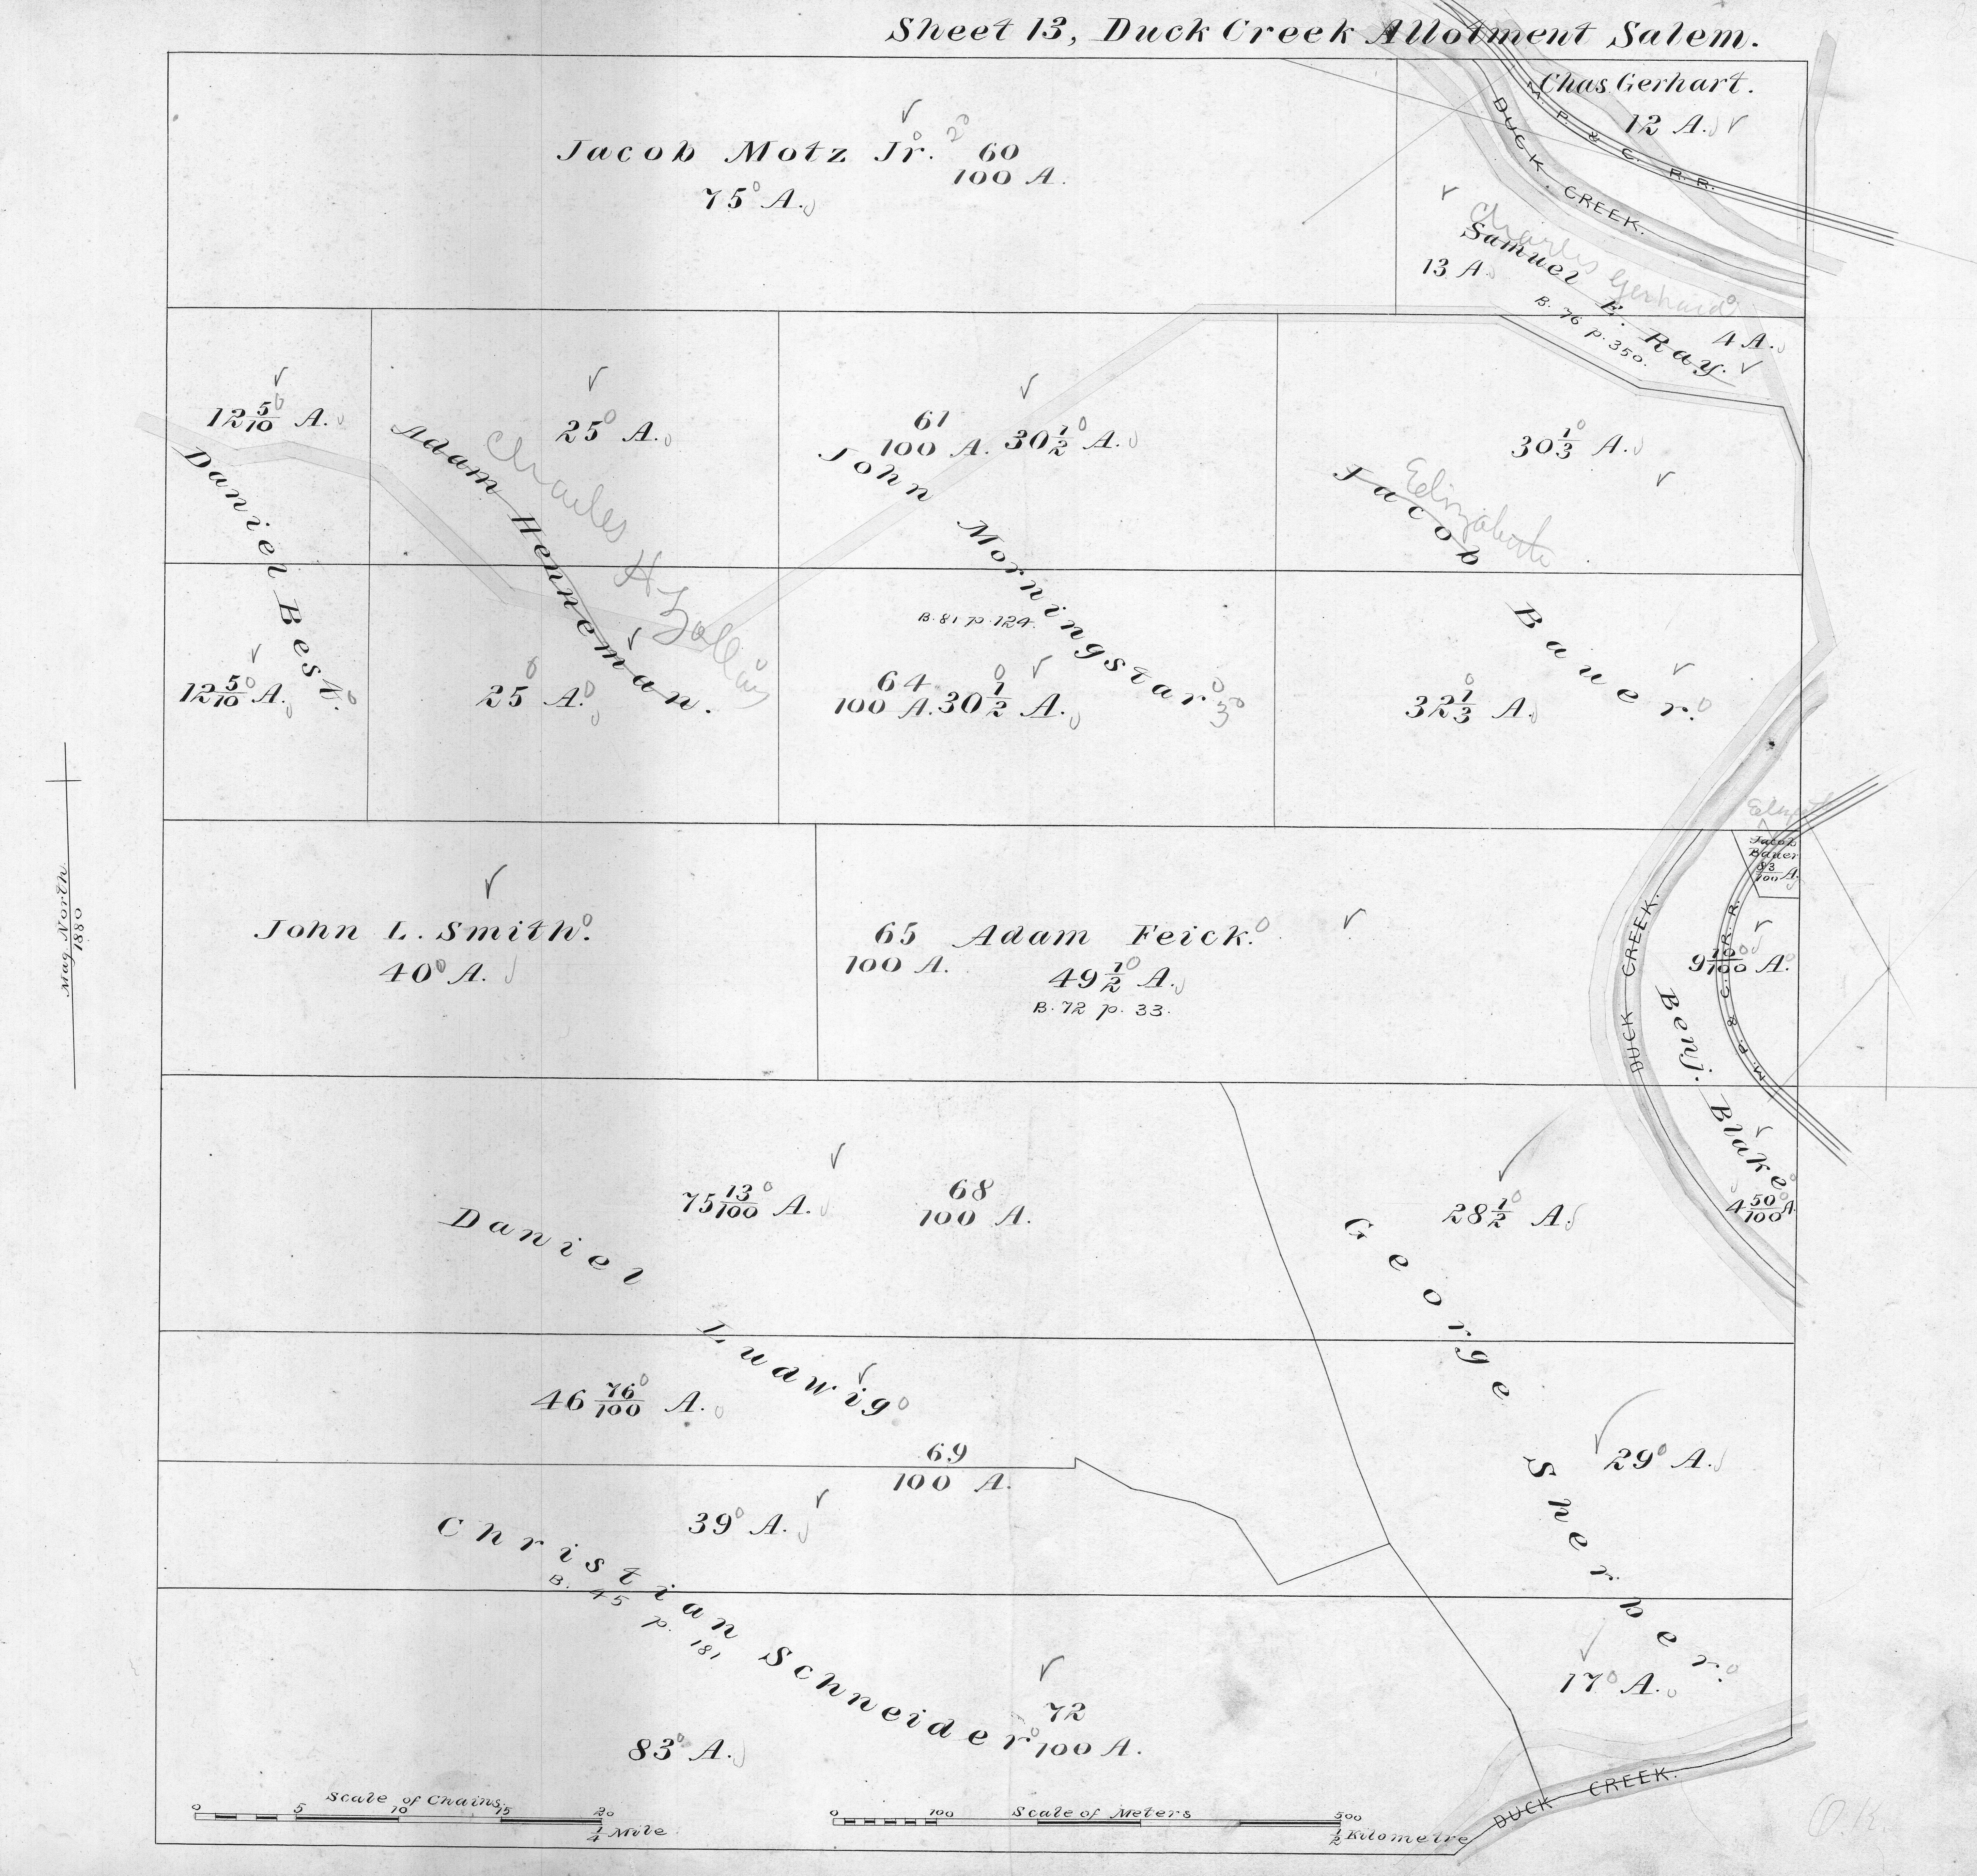 Sheet 13, Duck Creek Allotment Salem.
Chas. Gerhart.
12 A.
M. P. & C. R. R.
DUCK CREEK.
Jacob Motz Jr.
75 A.
60
100 A.
Charles Gerhard
Samuel E. Ray.
13 A.
B. 76 p. 350.
4 A.
12 5/10 A.
Daniel Best.
12 5/10 A.
25 A.
Adam Henneman.
Charles H
25 A.
61
100 A.
30 1/2 A.
John Morningstar
B. 81 p. 124.
64
100 A.
30 1/2 A.
30 1/3 A.
Elizabeth
Jacob Bauer.
32 1/3 A.
Mag. North.
1880
John L. Smith.
40 A.
65
100 A.
Adam Feick.
49 1/2 A.
B. 72 p. 33.
Jacob
Bauer
83/100 A.
DUCK CREEK.
M. P. & C. R. R.
9 10/100 A.
Benj. Blake
4 50/100 A.
Daniel Ludwig
75 13/100 A.
68
100 A.
28 1/2 A.
George Sherber.
46 76/100 A.
69
100 A.
29 A.
39 A.
Christian Schneider
B. 45 p. 181
72
100 A.
83 A.
17 A.
Scale of Chains.
0 5 10 15 20
1/4 Mile
Scale of Meters
0 100 500
1/2 Kilometre
DUCK CREEK.
O.K.